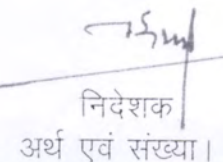 निदेशक
अर्थ एवं संख्या।